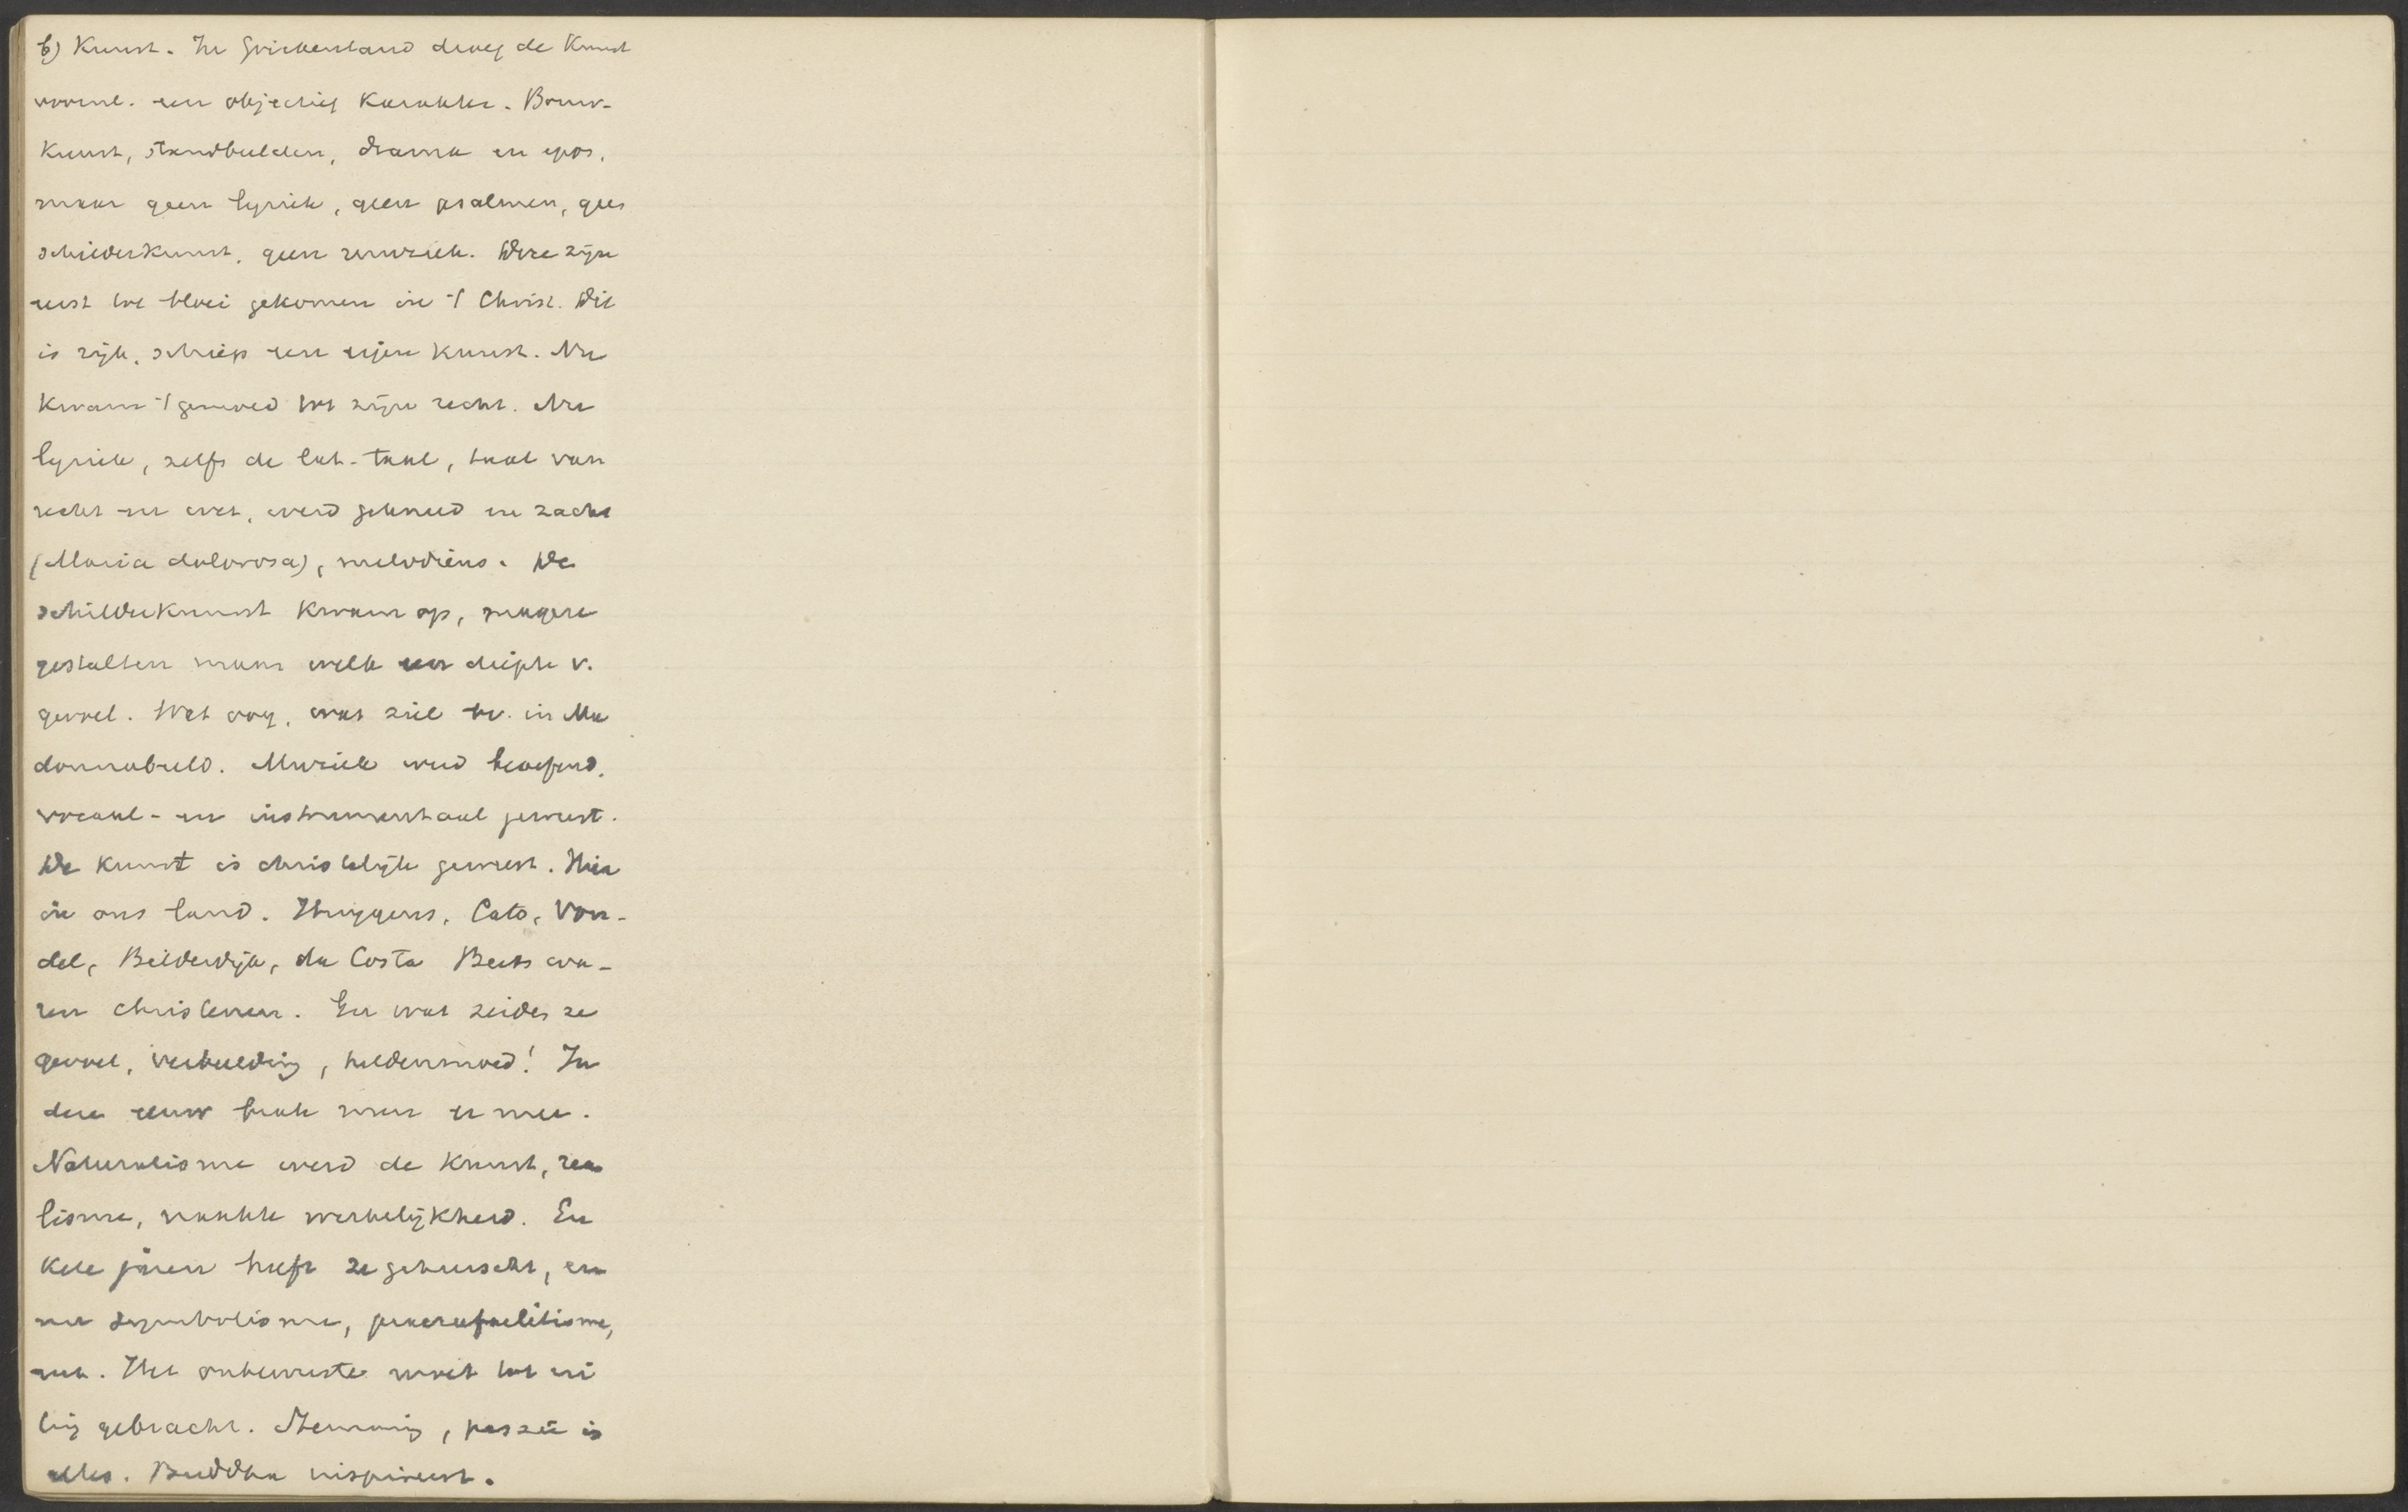 b) Kunst. In Griekenland droeg de Kunst
voornl. een objectief Karakter. Bouw-
Kunst, standbeelden, drama en epos,
maar geen lyriek, geen psalmen, geen
schilderkunst, geen muziek. Deze zijn
eerst tot bloei gekomen in 't Christ. Dit
is rijk, schiep een eigen Kunst. Nu
Kwam 't gemoed tot zijn recht. Nu
lyriek, zelfs de lat. taal, taal van
recht en wet, werd gekneed en zacht
(Maria dolorosa), melodieus. De
schilderkunst Kwam op, magere
gestalten maar welk een diepte v.
gevoel. Wat oog, wat ziel bv. in Ma
donnabeeld. Muziek werd beoefend,
vocaal- en instrumentaal
De Kunst is christelijk geweest. Hier
in ons land. Huygens, Cats, Von-
del, Bilderdijk, da Costa Beets wa-
ren christenen. En wat zeiden ze
gevoel, verbeelding, heldenmoed! In
deze eeuw brak men er mee.
Naturalisme werd de Kunst, rea
lisme, naakte werkelijkheid. En
Kele jaren heeft ze geheerscht, en
nu symbolisme, praerafaelitisme,
enz. Het onbewuste moet tot ui
ting gebracht. Stemming, passie is
alles. Buddha inspireert.